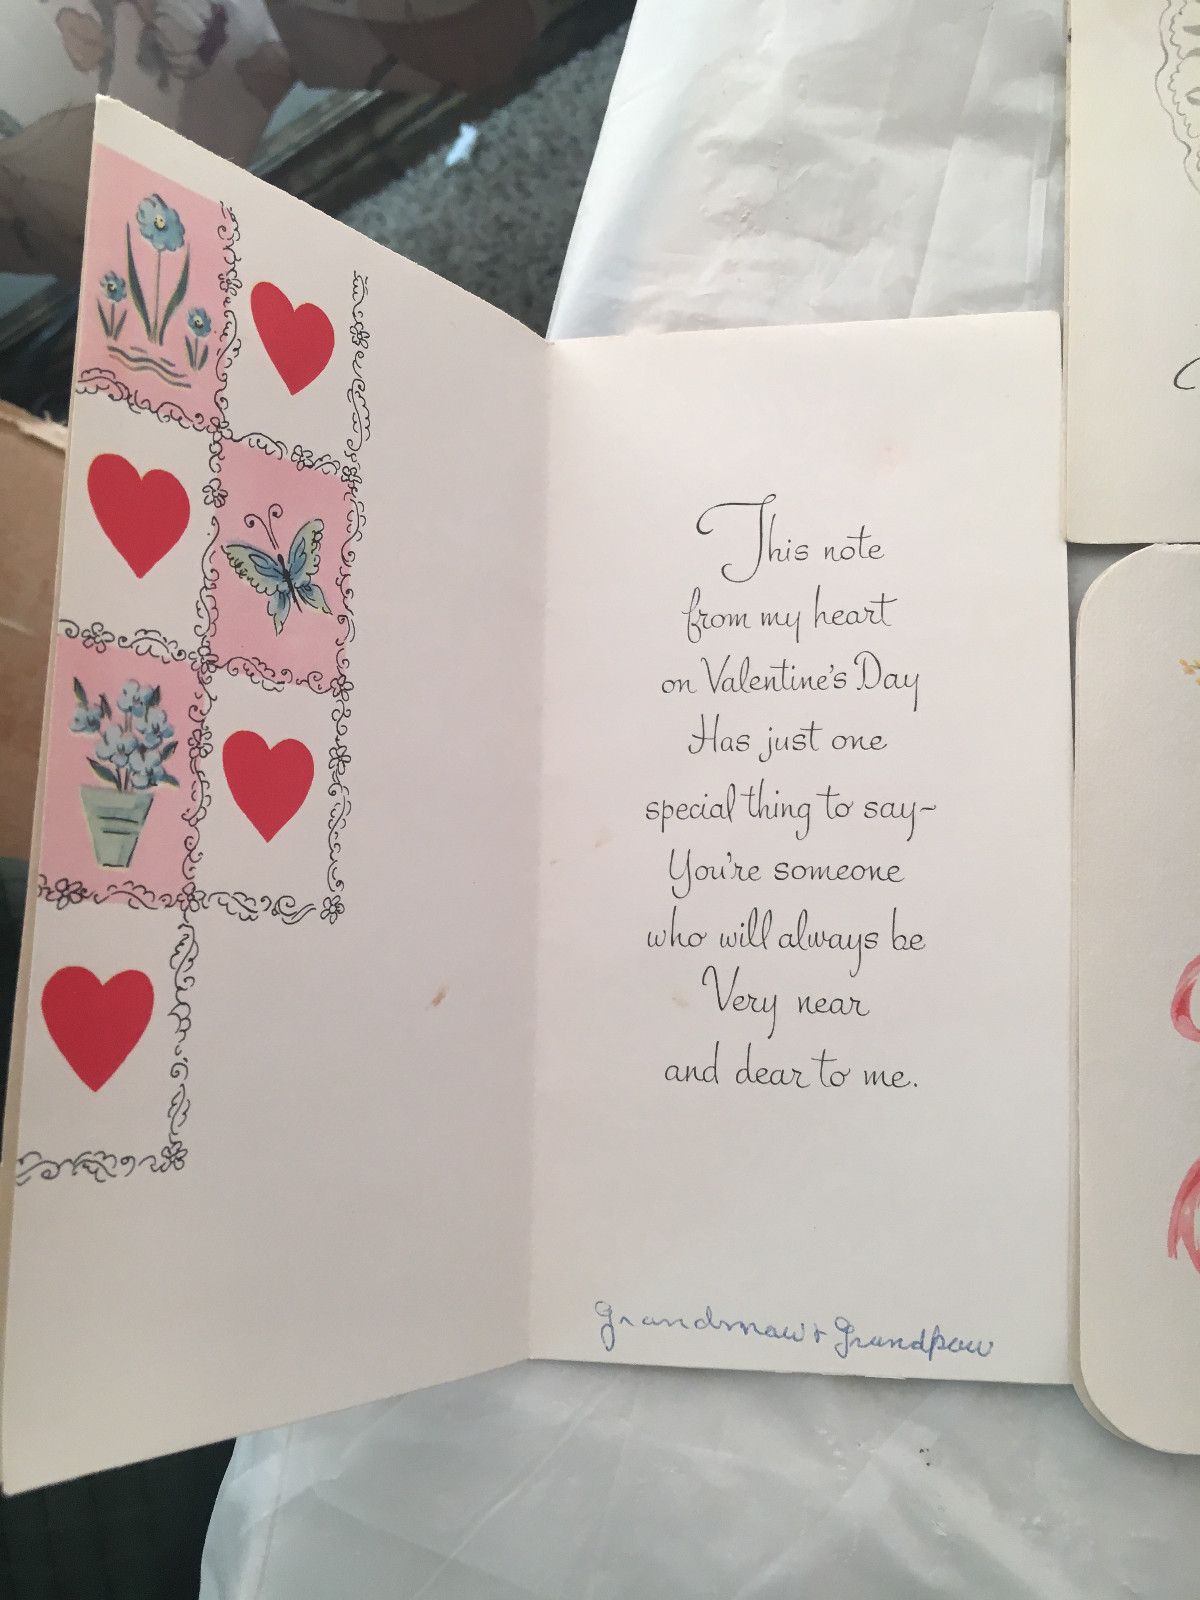 This note
from my heart
on Valentine's Day
Has just one
special thing to say~
You're someone
who will always be
Very near
and dear to me.
Grandmaw + Grandpaw